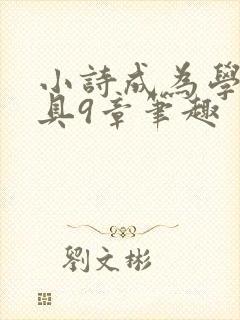 小詩成為學
具9章筆趣
劉文彬